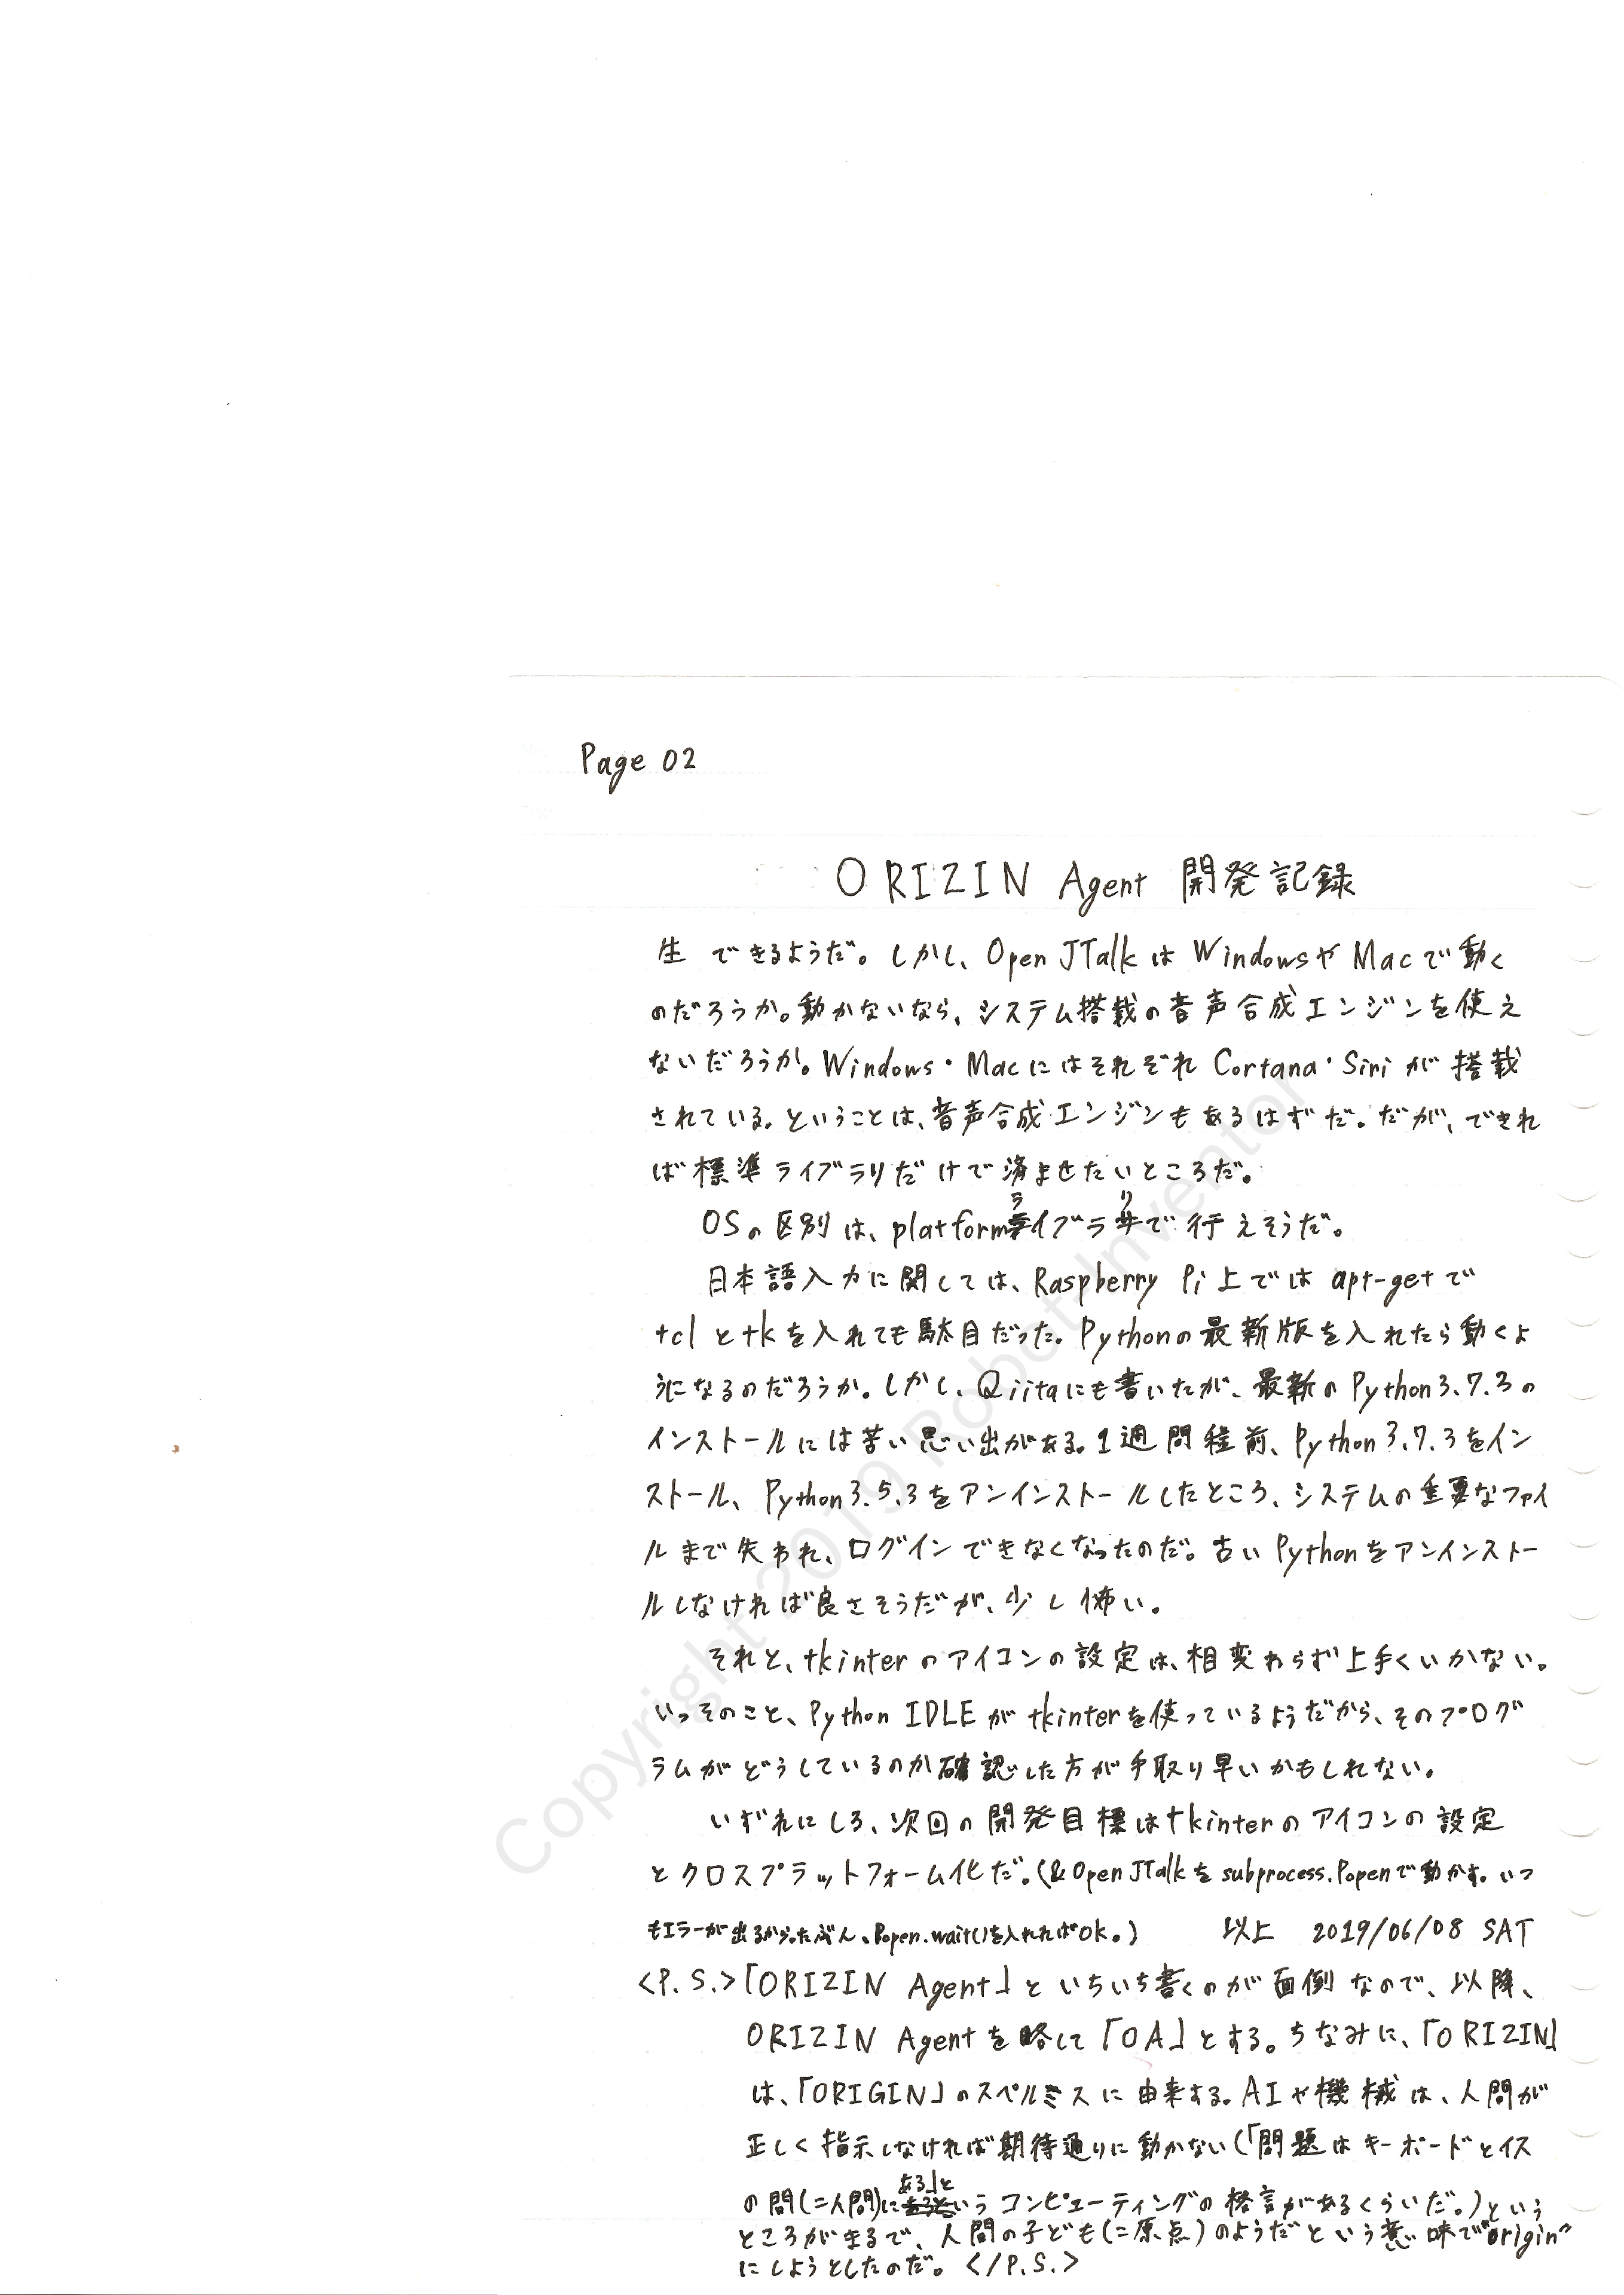 Page 02
ORIZIN Agent 開発記録
生できるようだ。しかし、Open JTalkはWindowsやMacで動く
のだろうか。動かないなら、システム搭載の音声合成エンジンを使え
ないだろうか。Windows・MacにはそれぞれCortana・Siriが搭載
されている。ということは、音声合成エンジンもあるはずだ。だが、できれ
ば標準ライブラリだけで済ませたいところだ。
OSの区別は、platformライブラリで行えそうだ。
日本語入力に関しては、Raspberry Pi上ではapt-getで
tclとtkを入れても駄目だった。Pythonの最新版を入れたら動くよ
うになるのだろうか。しかし、Qiitaにも書いたが、最新のPython3.7.3の
インストールには苦い思い出がある。1週間程前、Python3.7.3をイン
ストール、Python3.5.3をアンインストールしたところ、システムの重要なファイ
ルまで失われ、ログインできなくなったのだ。古いPythonをアンインストー
ルしなければ良さそうだが、少し怖い。
それと、tkinterのアイコンの設定は、相変わらず上手くいかない。
いっそのこと、Python IDLEがtkinterを使っているようだから、そのプログ
ラムがどうしているのか確認した方が手取り早いかもしれない。
いずれにしろ、次回の開発目標はtkinterのアイコンの設定
とクロスプラットフォーム化だ。(&Open JTalkをsubprocess.Popenで動かす。いつ
もエラーが出るから。たぶん、Popen.wait()を入れればok。) 以上 2019/06/08 SAT
<P.S.>「ORIZIN Agent」といちいち書くのが面倒なので、以降、
ORIZIN Agentを略して「OA」とする。ちなみに、「ORIZIN」
は、「ORIGIN」のスペルミスに由来する。AIや機械は、人間が
正しく指示しなければ期待通りに動かない(「問題はキーボードとイス
の間(=人間)にある」というコンピューティングの格言があるくらいだ。)という
ところがまるで、人間の子ども(=原点)のようだという意味で"origin"
にしようとしたのだ。</P.S.>
Copyright 2019 Robot-Inventor